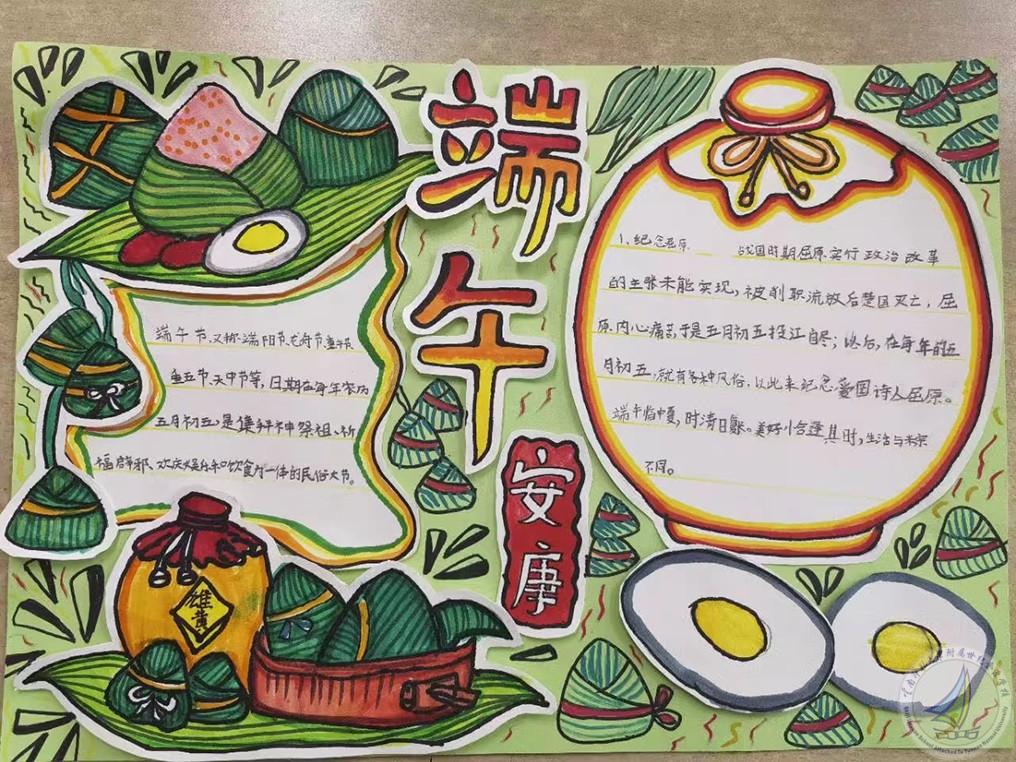 端午
安康
端午节、又称端阳节、龙舟节、重午节、
重五节、天中节等，日期在每年农历
五月初五，是集拜神祭祖、祈
福辟邪、欢庆娱乐和饮食为一体的民俗大节。
雄黄
1、纪念屈原 战国时期屈原实行政治改革
的主张未能实现，被削职流放后楚国灭亡，屈
原内心痛苦于是五月初五投江自尽；此后，在每年的五
月初五，就有各种风俗，以此来纪念爱国诗人屈原。
端午临中夏，时清日。美好小合逢其时，生活与未来
不同。
附属世纪